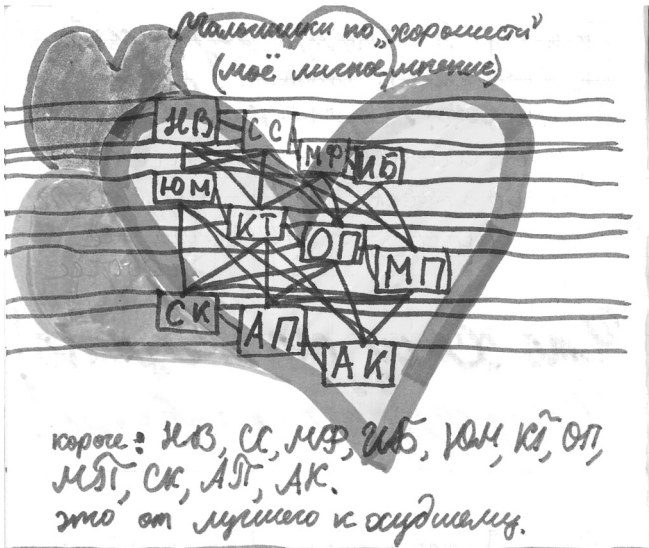 Мальчики по „хорошести“
(моё личное мнение)
НВ СС МФ ИБ
ЮМ КТ ОП МП
СК АП АК
короче: НВ, СС, МФ, ИБ, ЮМ, КТ, ОП,
МП, СК, АП, АК.
это от лучшего к худшему.